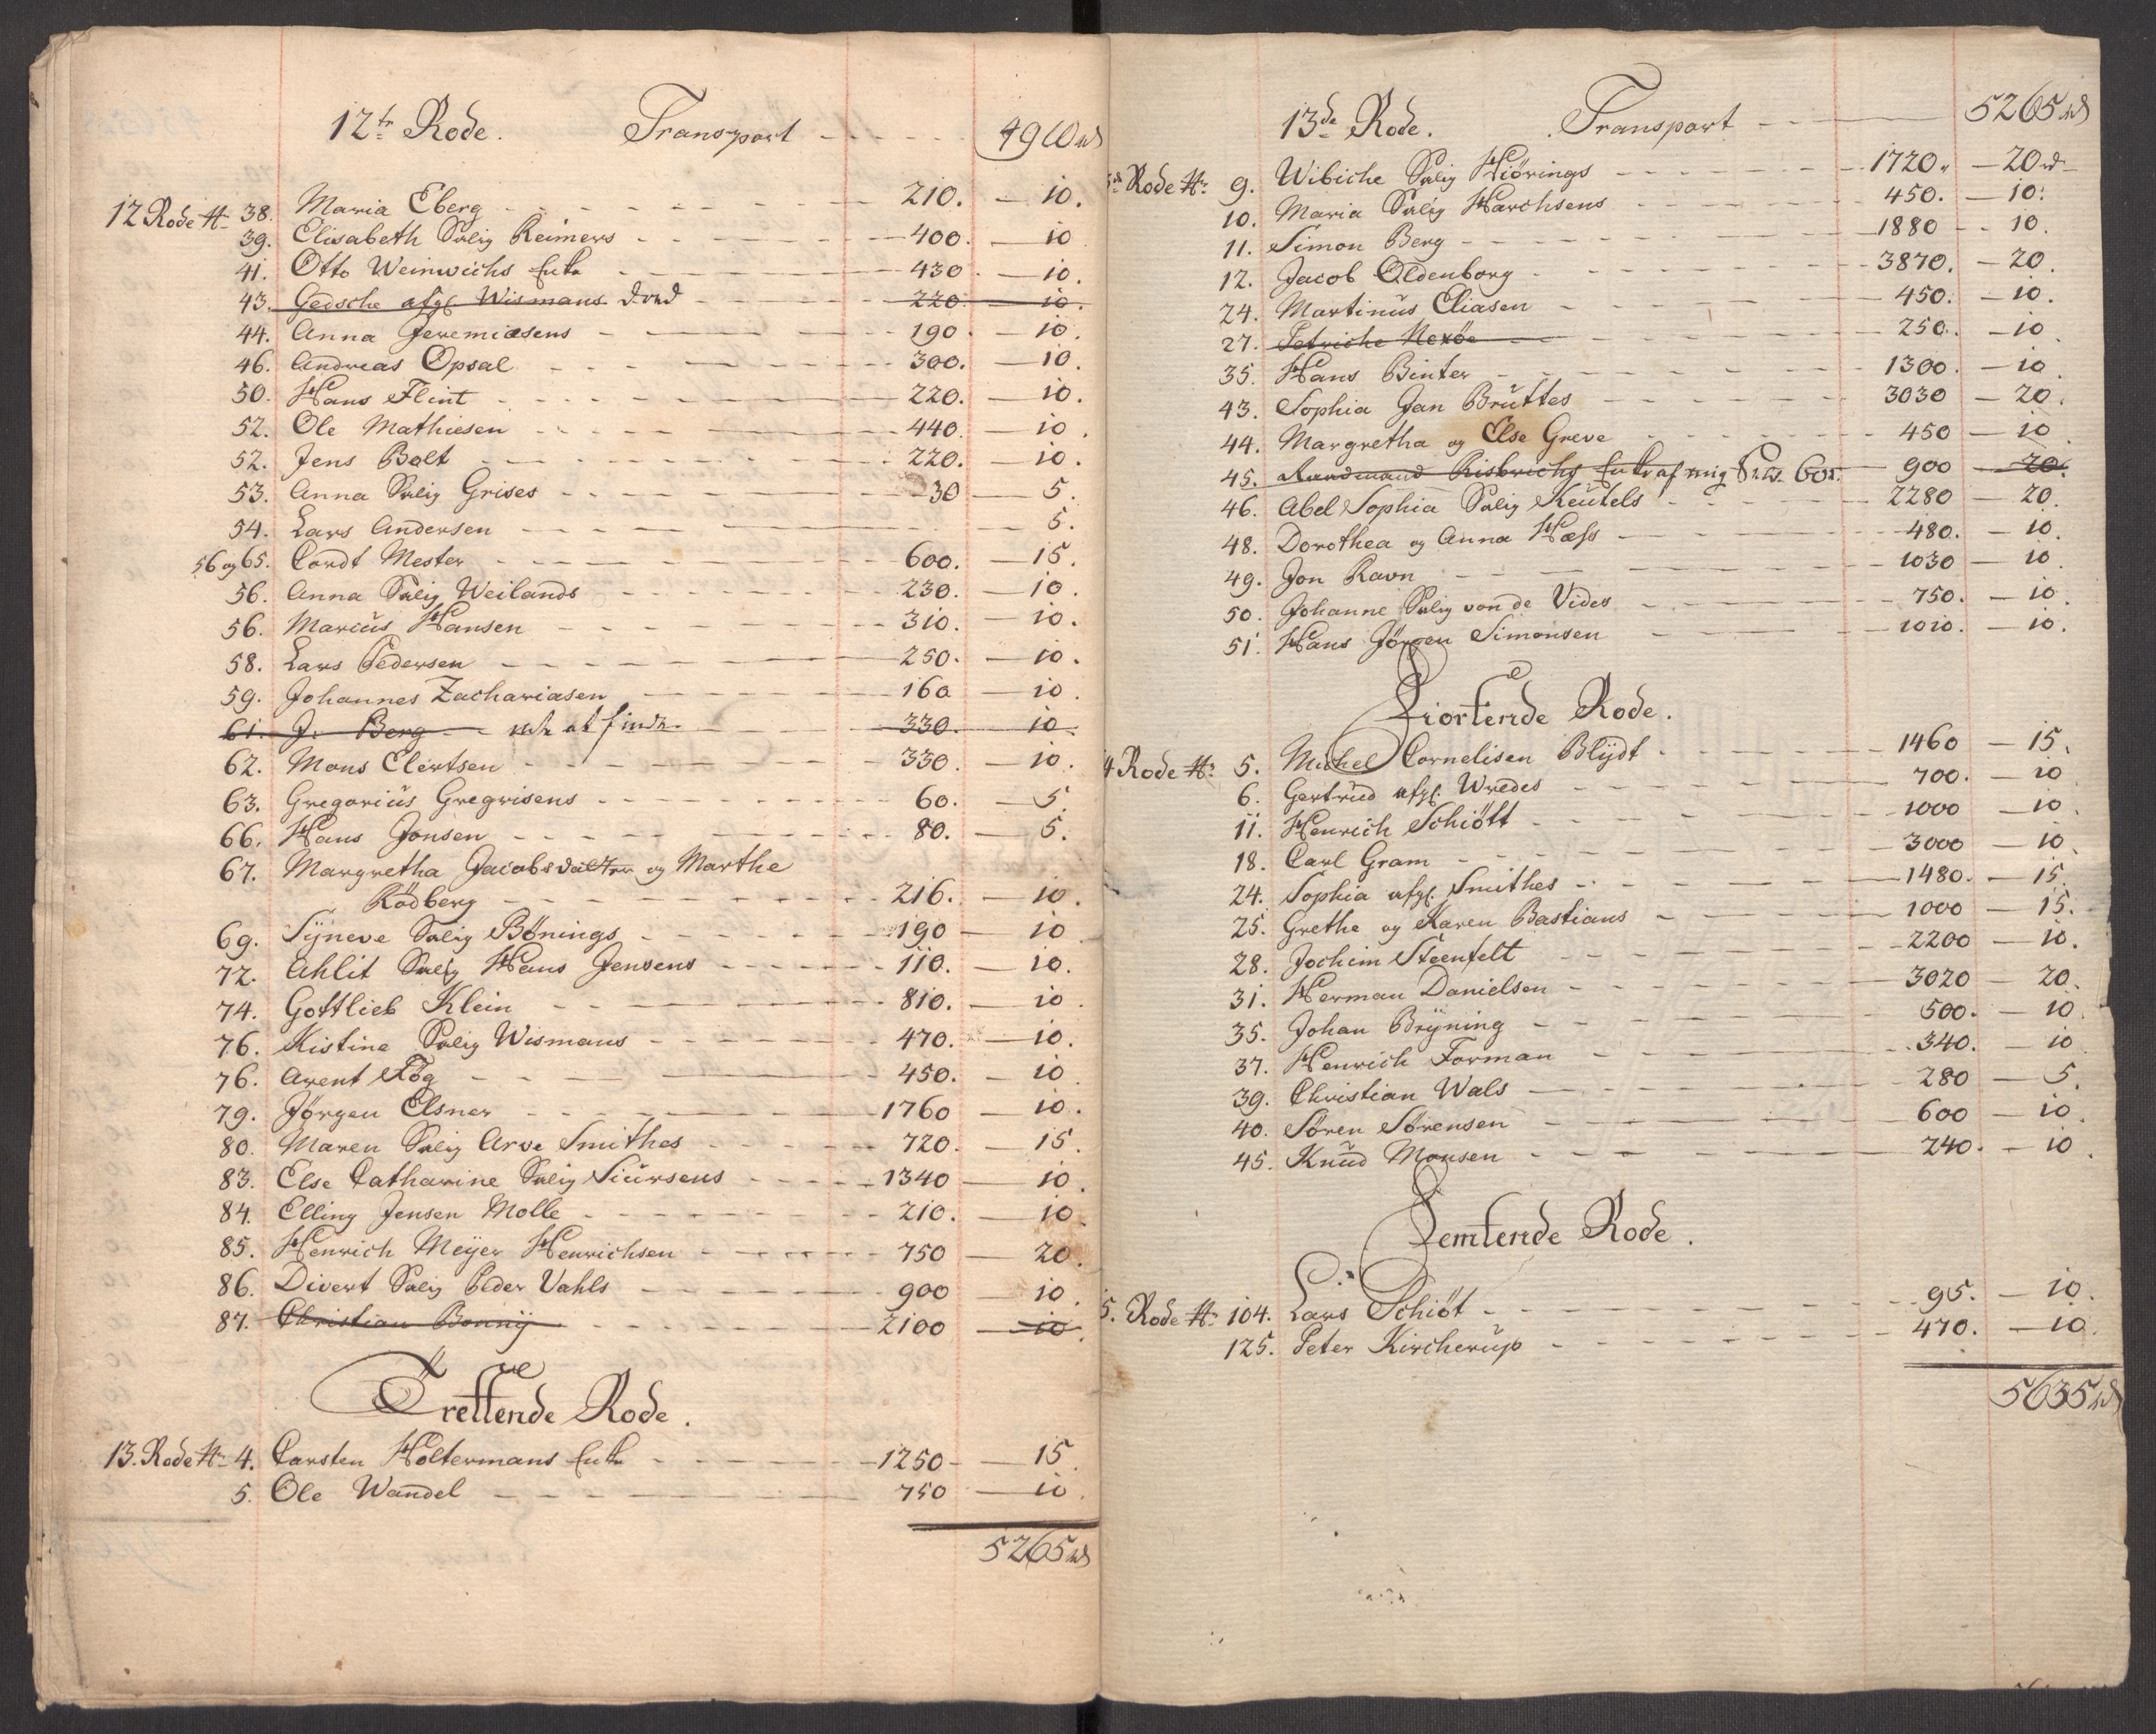 12te Rode. Transport - - - 4910 rd
12 Rode № 38. Maria Eberg - - - 210. - 10.
39. Elisabeth Salig Reimers - - - 400. - 10
41. Otto Weinwichs Enke - - - 430. - 10.
43. Gedsche afg. Wismans død - - - 220. - 10.
44. Anna Jeremiasens - - - 190. - 10.
46. Andreas Opsal - - - 300. - 10.
50. Hans Flint - - - 220. - 10.
52. Ole Mathiesen - - - 440. - 10.
52. Jens Bolt - - - 220. - 10.
53. Anna Salig Grises - - - 30 - 5.
54. Lars Andersen - - - 5.
56 og 65. Cordt Mester - - - 600. - 15.
56. Anna Salig Weilands - - - 230. - 10.
56. Marcus Hansen - - - 310. - 10.
58. Lars Pedersen - - - 250. - 10.
59. Johannes Zachariasen - - - 160 - 10.
61. J. Berg - at finde - - - 330. - 10.
62. Mons Elertsen - - - 330. - 10.
63. Gregorius Gregrisens - - - 60. - 5.
66. Hans Jonsen - - - 80. - 5.
67. Margretha Jacobsdaatter og Marthe
Rödberg - - - 216. - 10.
69. Syneve Salig Bönings - - - 190 - 10
72. Ahlit Salig Hans Jensens - - - 110. - 10.
74. Gottlieb Klein - - - 810. - 10
76. Kistine Salig Wismans - - - 470. - 10.
76. Arent Fög - - - 450. - 10.
79. Jörgen Elsner - - - 1760 - 10.
80. Maren Salig Arve Smithes - - - 720. - 15
83. Else Catharine Salig Siursens - - - 1340 - 10.
84. Elling Jensen Molle - - - 210. - 10.
85. Henrich Meyer Henrichsen - - - 750 - 20.
86. Divert Salig Peder Vahls - - - 900 - 10.
87. Christian Bonnij - - - 2100 - 10.
Trettende Rode.
13. Rode № 4. Carsten Holtermans Enke - - - 1250 - 15.
5. Ole Wandel - - - 750 - 10.
5265 rd
13de Rode. Transport - - - 5265 rd
Rode № 9. Wibiche Salig Hiörings - - - 1720. - 20 rd
10. Maria Salig Harchsens - - - 450. - 10.
11. Simon Berg - - - 1880 - 10.
12. Jacob Oldenborg - - - 3870. - 20.
24. Martinus Eliasen - - - 450. - 10.
27. Petriche Nexöe - - - 250. - 10
35. Hans Binter - - - 1300. - 10
43. Sophia Jan Bruttes - - - 3030 - 20.
44. Margretha og Else Greve - - - 450 - 10
45. Risbrichs Enke af mig 900 - 20.
46. Abel Sophia Salig Keutels - - - 2280 - 20.
48. Dorothea og Anna Hæss - - - 480. - 10.
49. Jon Ravn - - - 1030 - 10.
50. Johanne Salig von de Vides - - - 750. - 10
51. Hans Jörgen Simonsen - - - 1010. - 10.
Fiortende Rode.
4 Rode № 5. Michel Cornelisen Blijdt - - - 1460 - 15.
6. Gertrud afg. Wredes - - - 700. - 10
11. Henrich Schiött - - - 1000 - 10.
18. Carl Gram - - - 3000 - 10.
24. Sophia afg. Smithes - - - 1480. - 15.
25. Grethe og Karen Bastians - - - 1000 - 15.
28. Jochim Steenfelt - - - 2200 - 10.
31. Herman Danielsen - - - 3020 - 20.
35. Johan Bryning - - - 500. - 10.
37. Henrich Forman - - - 340. - 10
39. Christian Wals - - - 280 - 5.
40. Sören Sörensen - - - 600 - 10.
45. Knud Monsen - - - 240. - 10.
Femtende Rode.
5. Rode № 104. Lars Schiöt - - - 95. - 10.
125. Peter Kircherup - - - 470. - 10.
5635 rd